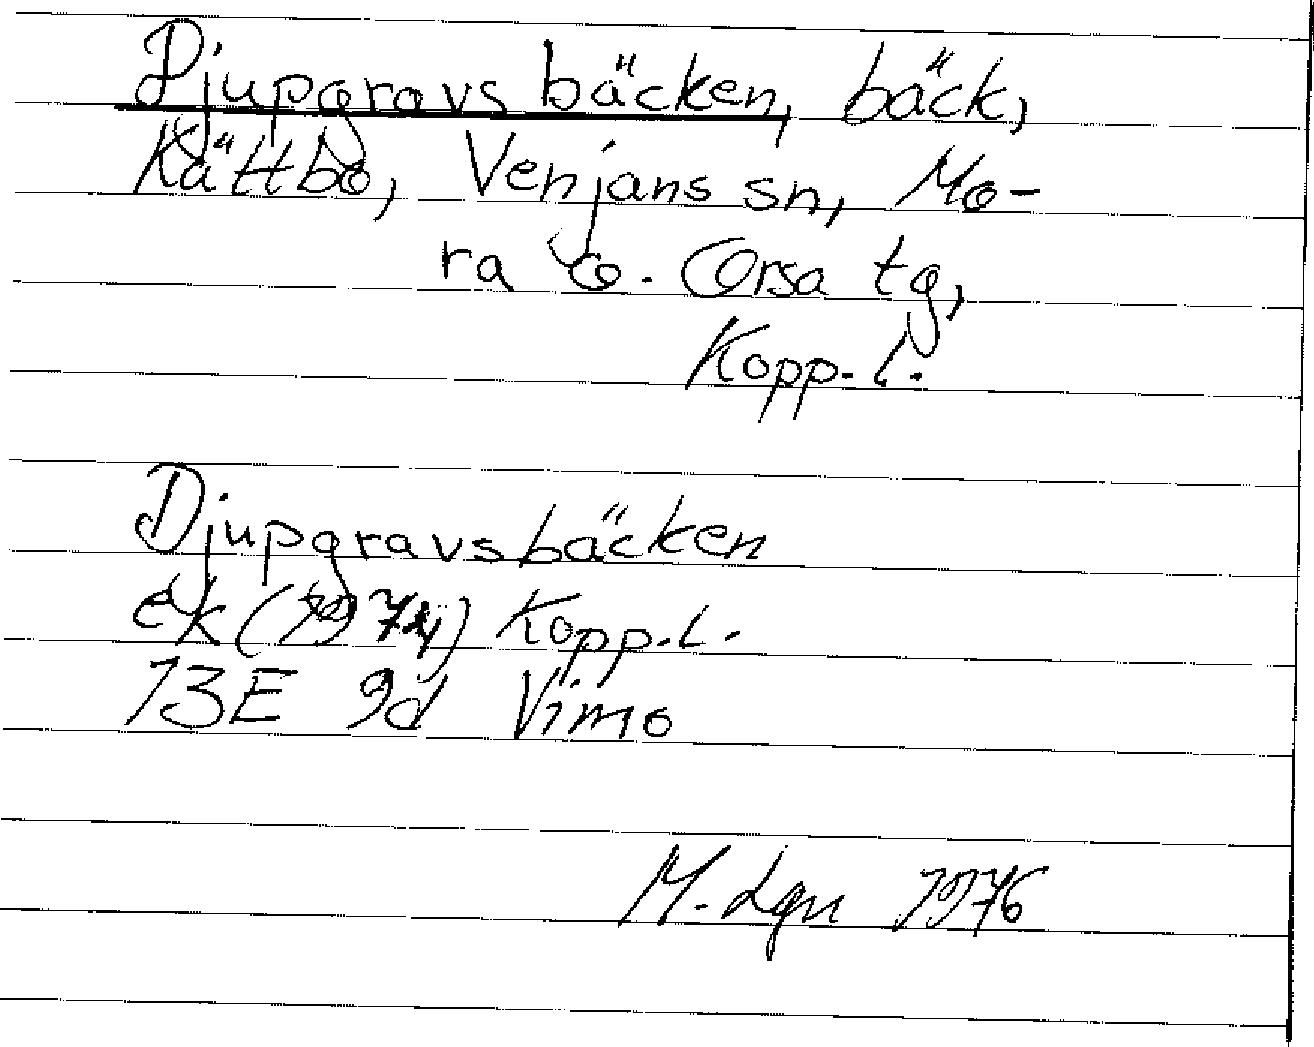 Djupgravsbäcken, bäck,
Kättbo, Venjans sn, Mo-
ra o. Orsa tg,
Kopp. l.
Djupgravsbäcken
ek (1974) Kopp. l.
13E 9d Vimo
M. Lgn 1976